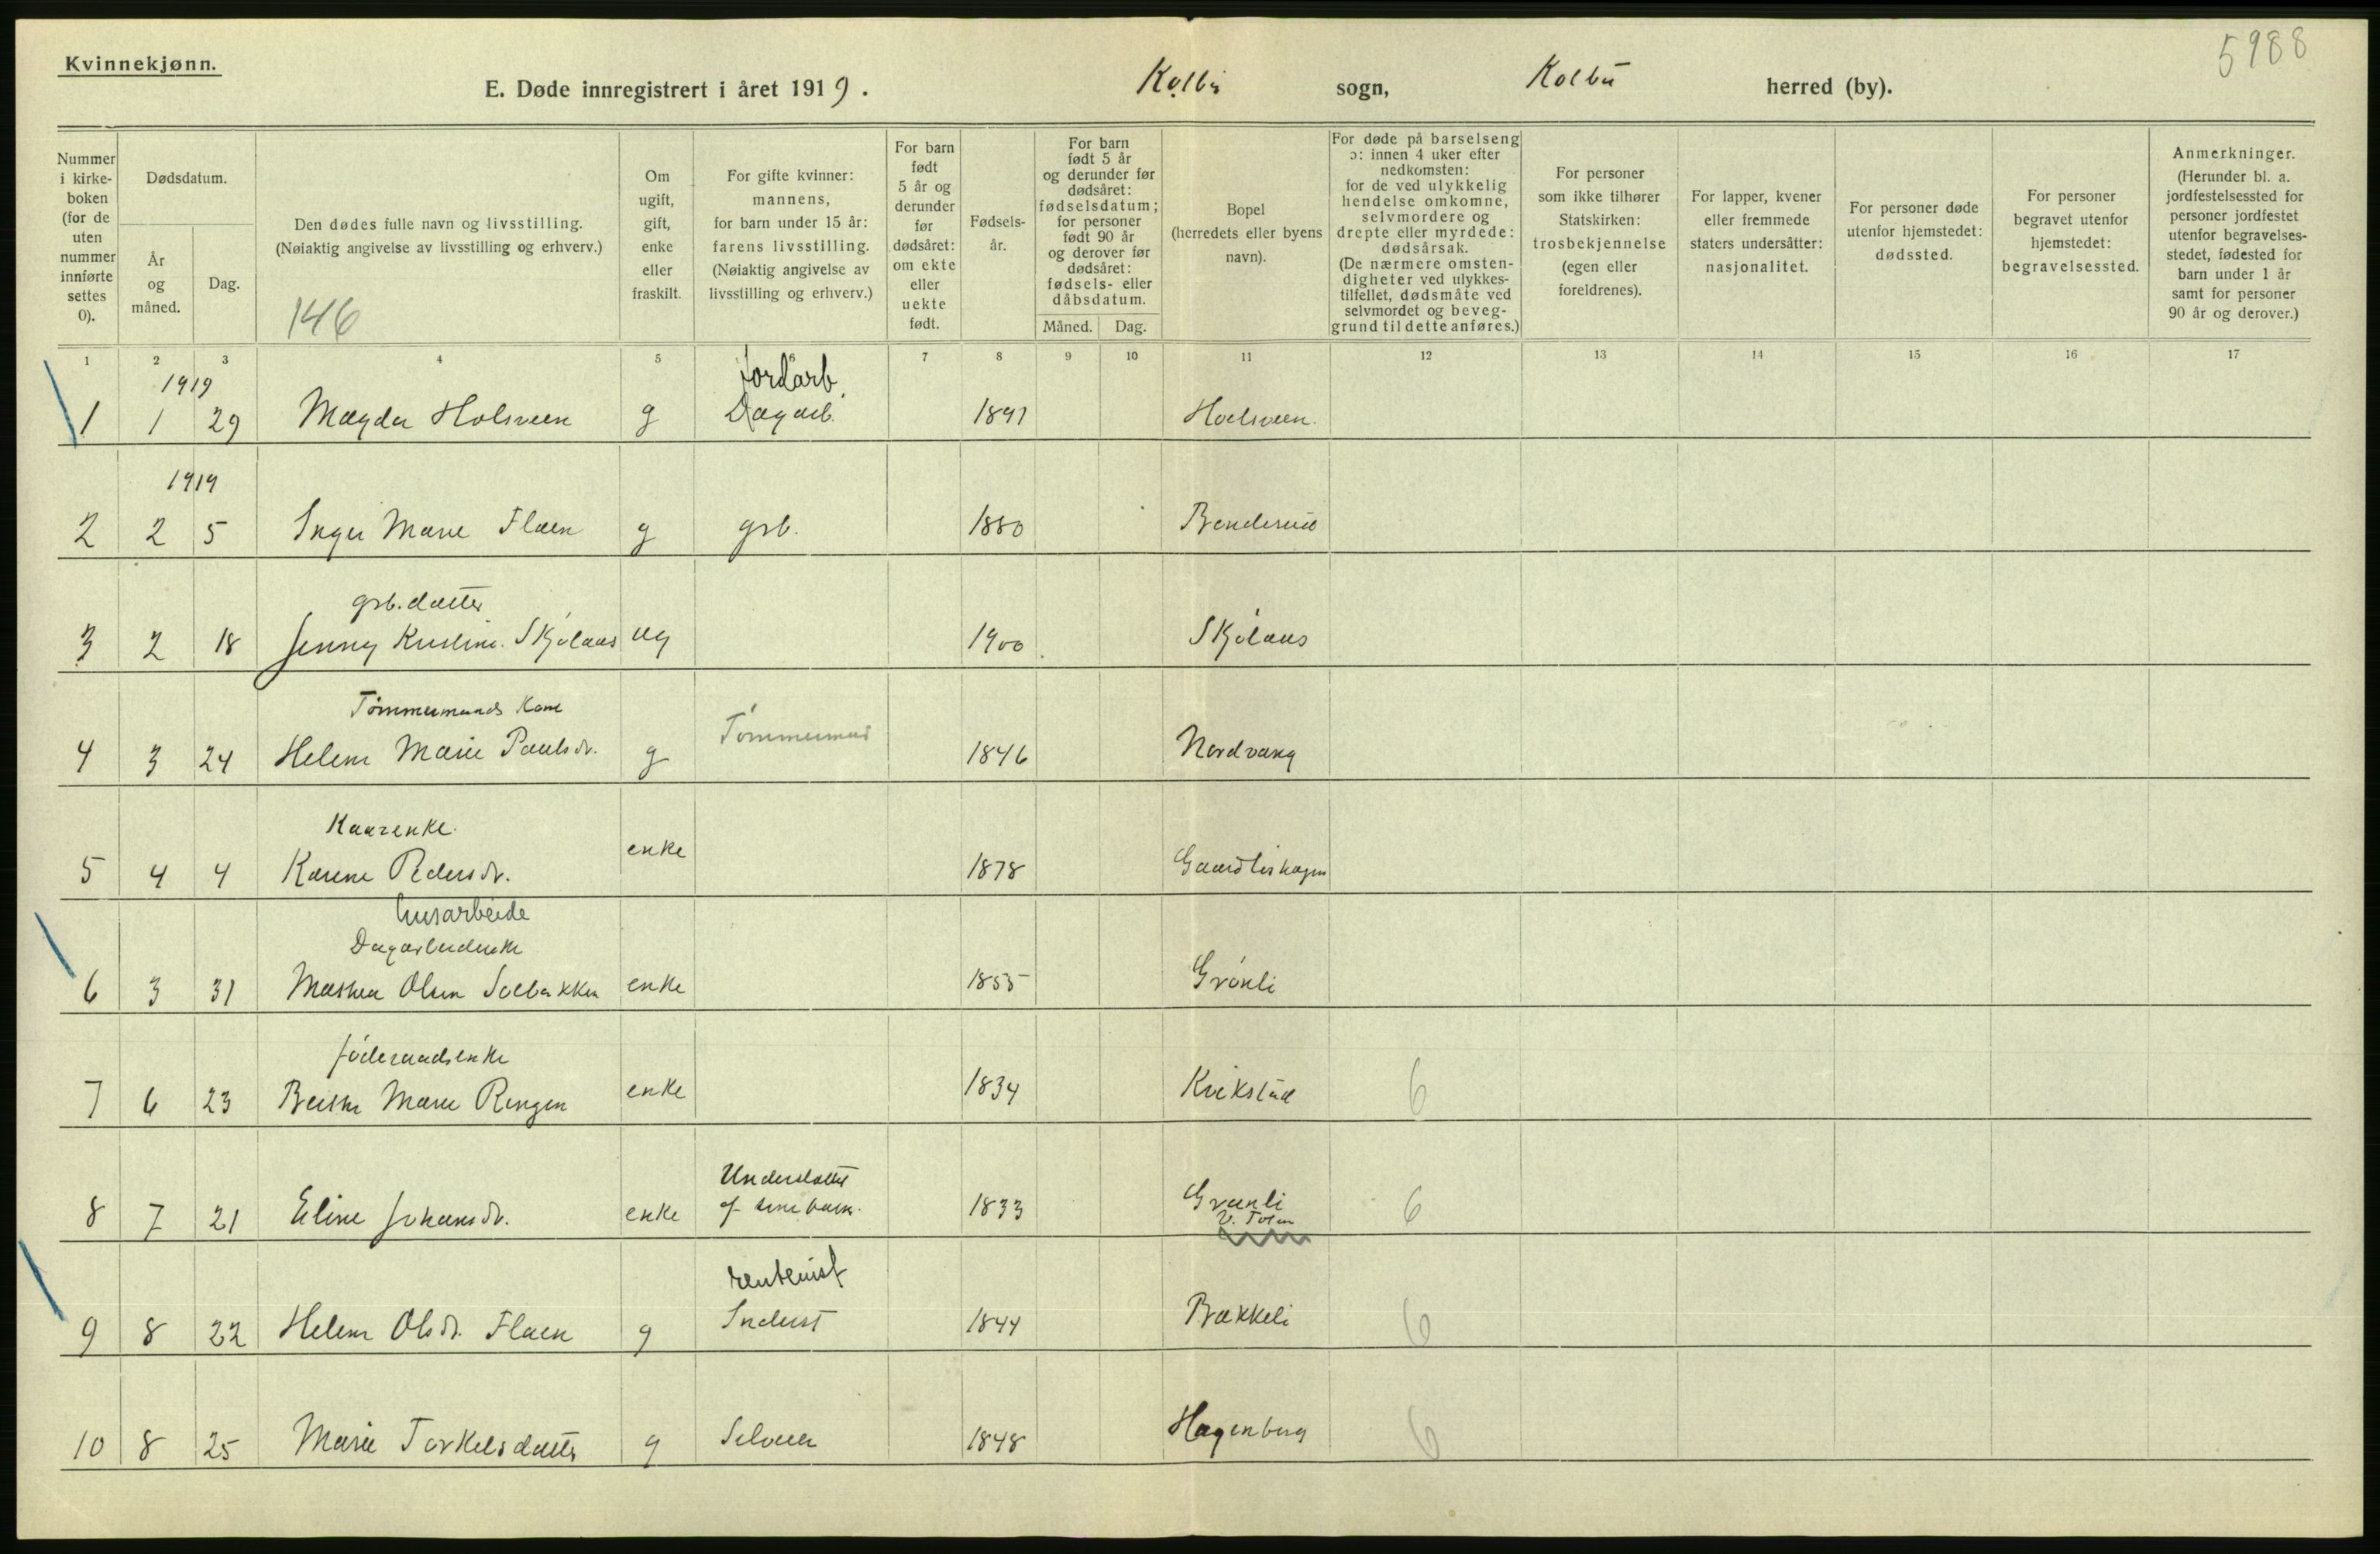 5988
Kvinnekjønn.
E. Døde innregistrert i året 1919. Kolbu sogn, Kolbu herred (by).
Nummer i kirkeboken (for de uten nummer innførte settes 0).
Dødsdatum.
År og måned.
Dag.
Den dødes fulle navn og livsstilling.
(Nøiaktig angivelse av livsstilling og erhverv.)
146
Om ugift, gift, enke eller fraskilt.
For gifte kvinner: mannens, for barn under 15 år: farens livsstilling. (Nøiaktig angivelse av livsstilling og erhverv.)
For barn født 5 år og derunder før dødsåret: om ekte eller uekte født.
Fødsels-år.
For barn født 5 år og derunder før dødsåret: fødselsdatum; for personer født 90 år og derover før dødsåret: fødsels- eller dåbsdatum.
Måned. Dag.
Bopel (herredets eller byens navn).
For døde på barselseng ɔ: innen 4 uker efter nedkomsten: for de ved ulykkelig hendelse omkomne, selvmordere og drepte eller myrdede: dødsårsak. (De nærmere omstendigheter ved ulykkestilfellet, dødsmåte ved selvmordet og beveggrund til dette anføres.)
For personer som ikke tilhører Statskirken: trosbekjennelse (egen eller foreldrenes).
For lapper, kvener eller fremmede staters undersåtter: nasjonalitet.
For personer døde utenfor hjemstedet: dødssted.
For personer begravet utenfor hjemstedet: begravelsessted.
Anmerkninger. (Herunder bl. a. jordfestelsessted for personer jordfestet utenfor begravelsesstedet, fødested for barn under 1 år samt for personer 90 år og derover.)
1 2 3 4 5 6 7 8 9 10 11 12 13 14 15 16 17
1919 jordarb.
1 1 29 Magda Holsveen g Dagarb. 1891 Hoelsveen.
1919
2 2 5 Inger Marie Flaen g grb. 1880 Benderud
grb.datter
3 2 18 Jenny Kristine Skjølaas ug 1900 Skjølaas
Tømmermands Kone
4 3 24 Helene Marie Paulsdr. g Tømmermand 1846 Nordvang
Kaarenke.
5 4 4 Karene Pedersdr. enke 1878
husarbeide
Dagarbeiderenke
6 3 31 Mathea Olsen Solbakken enke 1855 Grønli
føderaadsenke
7 6 23 Marie Ringen enke 1834 Kvikstad 6
Understøttet
8 7 21 Eline Johansdr. enke af sine barn. 1833 Granli 6
V. Toten
rentenist
9 8 22 Helene Olsdr. Flaen g Inderst 1844 Bækkeli 6
10 8 25 Marie Torkelsdatter g Selveier 1848 Hagenberg 6